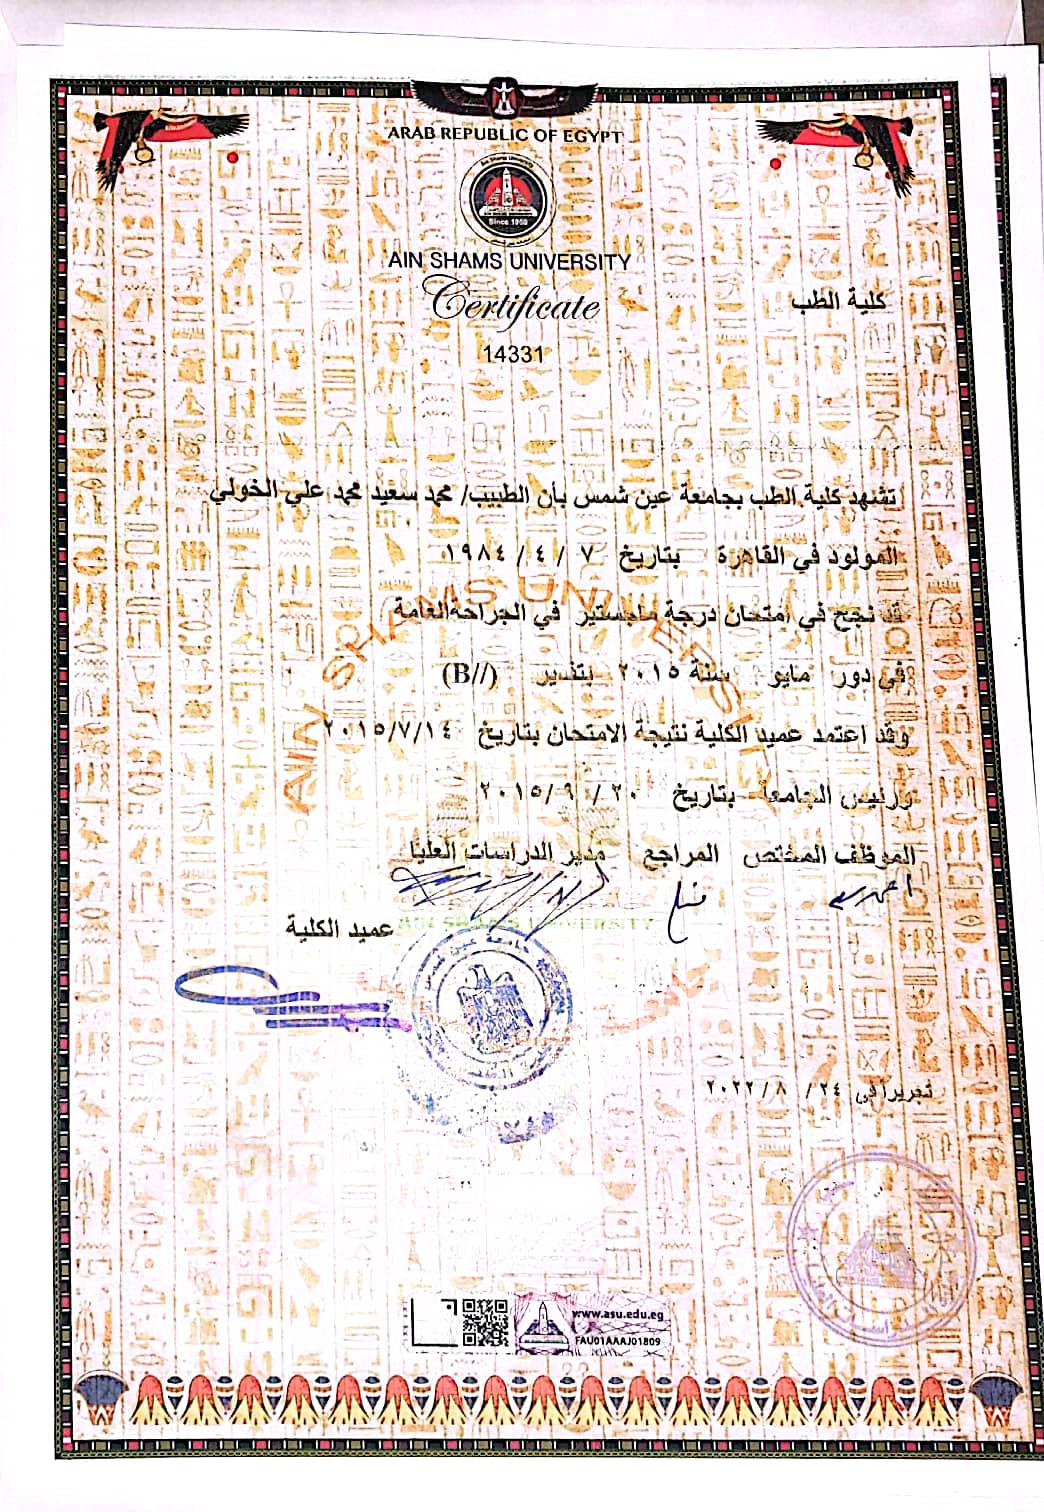 ARAB REPUBLIC OF EGYPT
Ain Shams University
Since 1950
AIN SHAMS UNIVERSITY
Certificate
كلية الطب
14331
تشهد كلية الطب بجامعة عين شمس بأن الطبيب/ محمد سعيد محمد علي الخولي
المولود في القاهرة بتاريخ ٧ / ٤ / ١٩٨٤
قد نجح في امتحان درجة ماجستير في الجراحة العامة
في دور مايو سنة ٢٠١٥ بتقدير (B//)
وقد اعتمد عميد الكلية نتيجة الامتحان بتاريخ ٢٠١٥/٧/١٤
ورئيس الجامعة بتاريخ ٢٠١٥/٩/٢٠
الموظف المختص المراجع مدير الدراسات العليا
AIN SHAMS UNIVERSITY
عميد الكلية
AIN SHAMS UNIVERSITY
جامعة عين شمس
تحريرا في ٢٤ / ٨ / ٢٠٢٢
www.asu.edu.eg
FAU01AAAJ01809